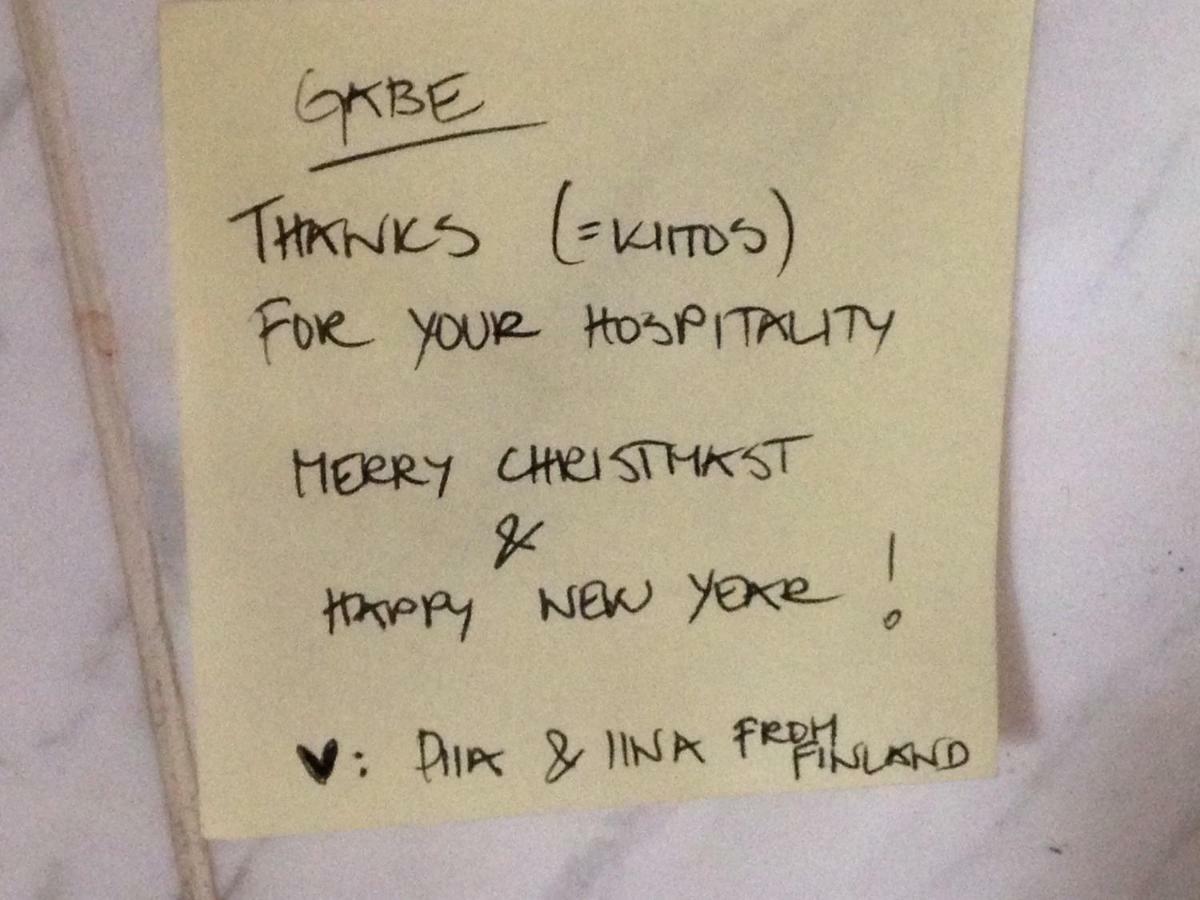 GABE
THANKS (=KIITOS)
FOR YOUR HOSPITALITY
MERRY CHRISTMAST
&
HAPPY NEW YEAR!
♥: PIIA & IINA FROM
FINLAND